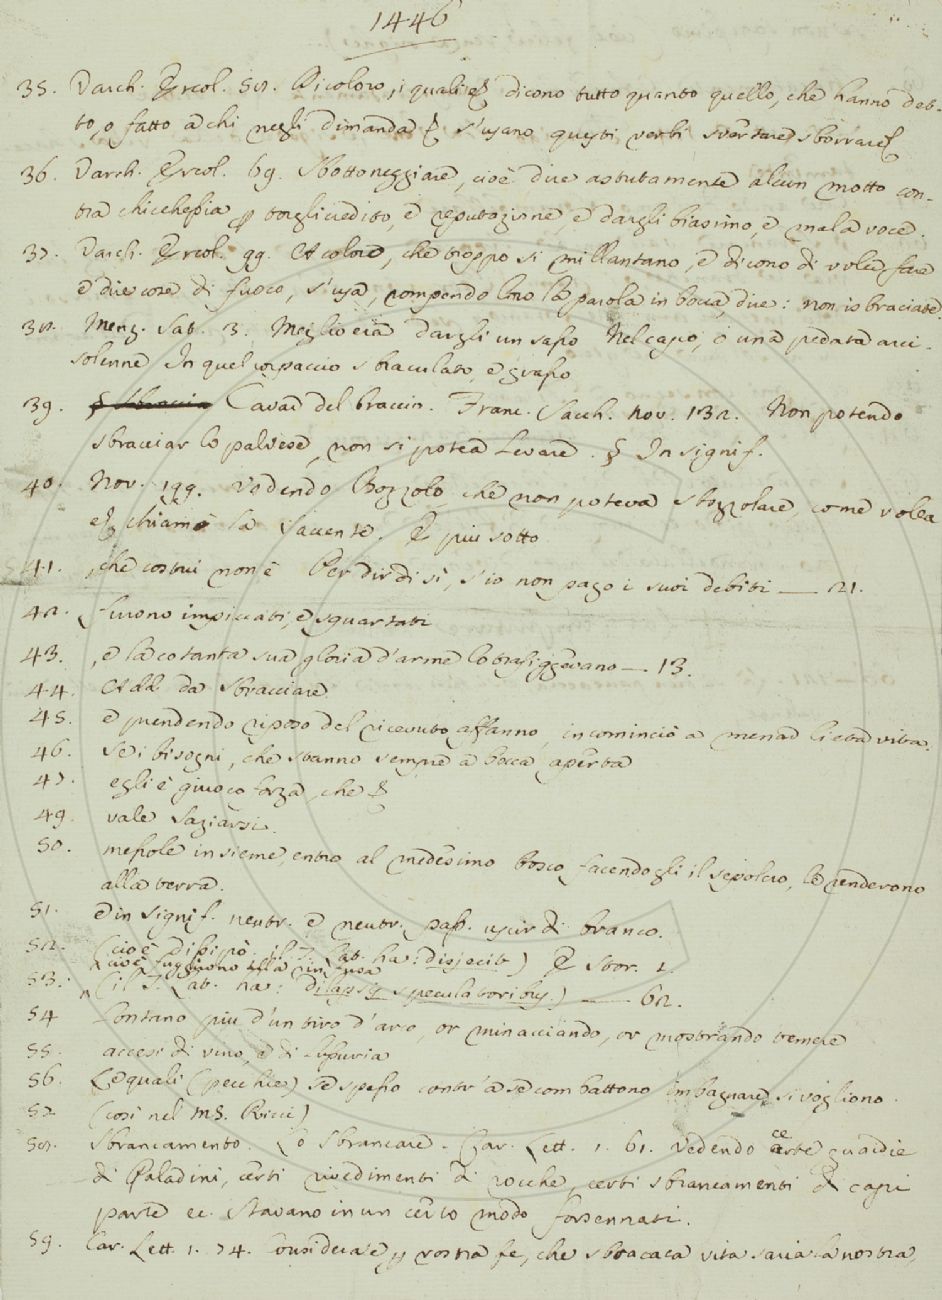 1446
35. Varch. Ercol. 58. Di coloro, i quali ec dicono tutto quanto quello, che hanno det-
to, o fatto a chi negli dimanda § s'usano questi verbi svertare, sborrare ec
36. Varch. Ercol. 69. Sbottoneggiare, cioè dire astutamente alcun motto con-
tra chicchessia p torgli credito, e reputazione, e dargli biasimo, e mala voce.
37. Varch. Ercol. 99. A coloro, che troppo si millantano, e dicono di voler fare
e dire cose di fuoco, s'usa, rompendo loro la parola in bocca, dire: non isbraciate.
38. Menz. Sat. 3. Meglio era dargli un sasso Nel capo, o una pedata arci-
solenne In quel corpaccio sbraculato, e grasso
39. Cavar del braccio. Franc. Sacch. nov. 132. Non potendo
sbracciar lo palvese, non si potea levare. § In signif.
40. Nov. 199. Vedendo Bozzolo che non poteva sbozzolare, come volea
ec chiamò la Saccente. E più sotto
41. , che costui non è Per dir di sì, s'io non pago i suoi debiti — 21.
42. furono impiccati, e squartati
43. , e la cotanta sua gloria d'arme lo trafiggevano — 13.
44. Add. da Sbracciare
45. e prendendo riposo del ricevuto affanno, incominciò a menar lieta vita.
46. Se i bisogni, che stanno sempre a bocca aperta
47. egli è giuoco forza, che §
49. vale Saziarsi.
50. messole insieme, entro al medesimo bosco facendogli il sepolcro, le renderono
alla terra.
51. e in signif. neutr. e neutr. pass. uscir di branco.
52. (cioè dissipò. il T. Lat. ha: disjecit) E Stor. 1.
(cioè fuggirono alla rinfusa
53. (il T. Lat. ha: dilapsis speculatoribus.) — 62.
54 Lontano più d'un tiro d'arco, or minacciando, or mostrando temere
55. accesi di vino, e di lussuria
56. Le quali (pecchie) se spesso contr'a se combattono imbagnare si vogliono.
57 (così nel MS. Ricci)
58. Sbrancamento. Lo sbrancare. Car. Lett. 1. 61. Vedendo certe guardie
di Paladini, certi rivedimenti di rocche, certi sbrancamenti di capi
parte ec. stavano in un certo modo forsennati.
59. Car. Lett. 1. 74. Considerate, p vostra fe, che sbracata vita saria la nostra,